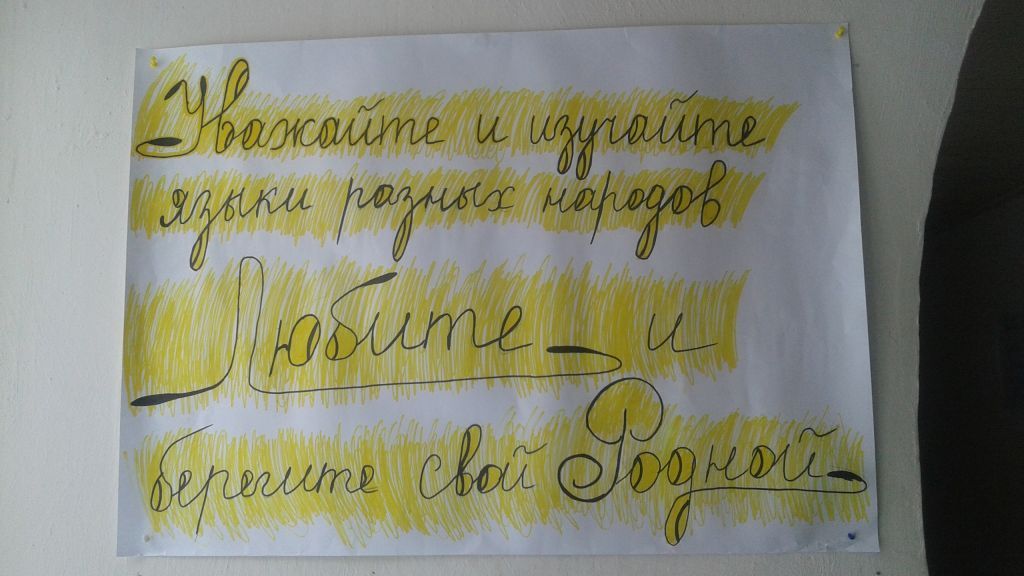 Уважайте и изучайте
языки разных народов
Любите и
берегите свой Родной